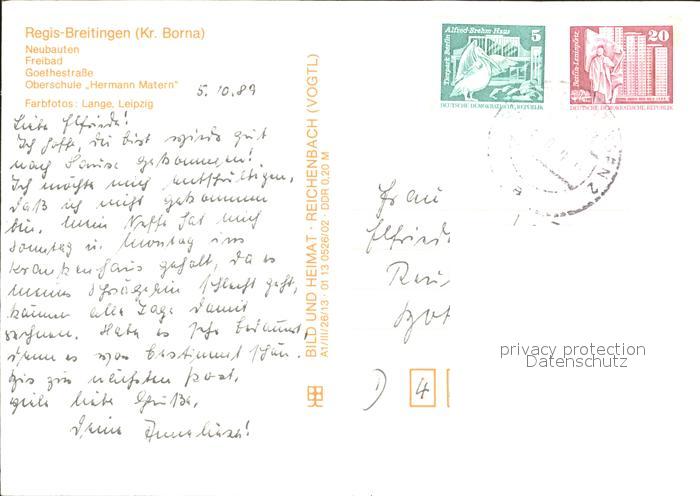 Regis-Breitingen (Kr. Borna)
Neubauten
Freibad
Goethestraße
Oberschule „Hermann Matern"
Farbfotos: Lange, Leipzig
5.10.89
Liebe Elfriede!
Ich hoffe, du bist wieder gut
nach Hause gekommen!
Ich möchte mich entschuldigen,
daß ich nicht gekommen
bin. Mein Neffe hat mich
Sonntag u. Montag ins
Krankenhaus geholt, da es
meiner Schwägerin schlecht geht,
können alle Tage damit
rechnen. Habe es sehr bedauert,
denn es war bestimmt schön.
Bis zur nächsten Post,
viele liebe Grüße,
Deine Anneliese!
BILD UND HEIMAT · REICHENBACH (VOGTL)
A1/III/26/13 · 01 13 0526/02 · DDR 0,20 M
Alfred-Brehm Haus
Tierpark Berlin
5
DEUTSCHE DEMOKRATISCHE REPUBLIK
Berlin-Leninplatz
20
DEUTSCHE DEMOKRATISCHE REPUBLIK
EN 2
Frau
Elfried
4
privacy protection
Datenschutz